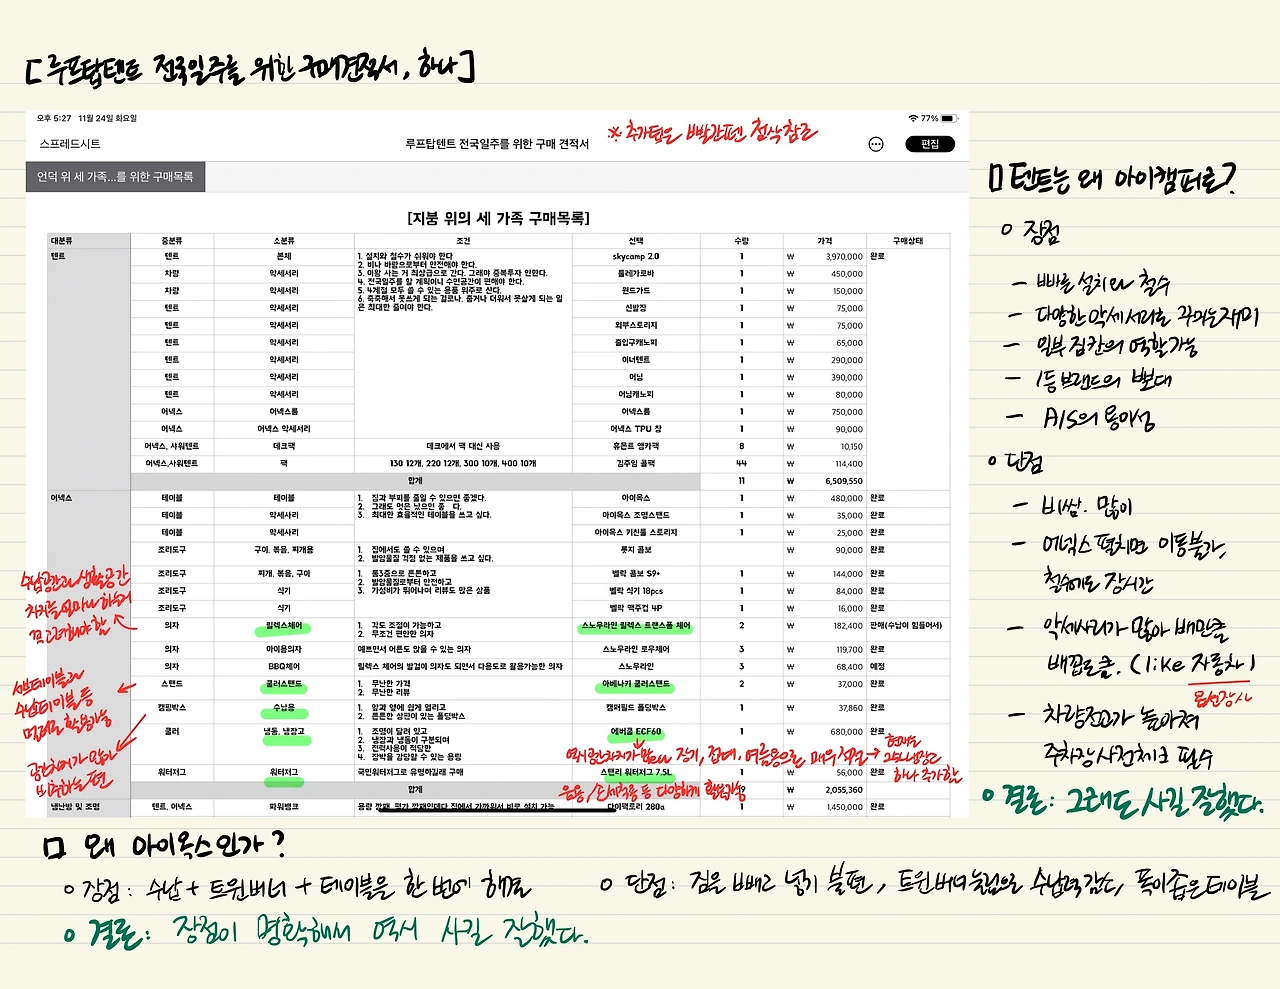 [루프탑텐트 전국일주를 위한 구매견적서, 하나]
오후 5:27 11월 24일 화요일
77%
스프레드시트
루프탑텐트 전국일주를 위한 구매 견적서
※ 추가팁은 빨간펜 첨삭참고
편집
언덕 위 세 가족...를 위한 구매목록
[지붕 위의 세 가족 구매목록]
대분류 중분류 소분류 조건 선택 수량 가격 구매상태
텐트 텐트 본체 1. 설치와 철수가 쉬워야 한다 skycamp 2.0 1 ₩ 3,970,000 완료
2. 비나 바람으로부터 안전해야 한다.
차량 악세서리 3. 이왕 사는 거 최상급으로 간다. 그래야 중복투자 안한다. 툴레가로바 1 ₩ 450,000
4. 전국일주를 할 계획이니 수면공간이 편해야 한다.
차량 악세서리 5. 4계절 모두 쓸 수 있는 용품 위주로 산다. 윈드가드 1 ₩ 150,000
6. 축축해서 못쓰게 되는 걸로나, 춥거나 더워서 못살게 되는 일
은 최대한 줄여야 한다.
텐트 악세서리 신발장 1 ₩ 75,000
텐트 악세서리 외부스토리지 1 ₩ 75,000
텐트 악세서리 출입구캐노피 1 ₩ 65,000
텐트 악세서리 이너텐트 1 ₩ 290,000
텐트 악세서리 어닝 1 ₩ 390,000
텐트 악세서리 어닝캐노피 1 ₩ 80,000
어넥스 어넥스룸 어넥스룸 1 ₩ 750,000
어넥스 어넥스 악세서리 어넥스 TPU 창 1 ₩ 90,000
어넥스, 샤워텐트 데크팩 데크에서 팩 대신 사용 휴몬트 앵카팩 8 ₩ 10,150
어넥스,샤워텐트 팩 130 12개, 220 12개, 300 10개, 400 10개 김주임 콜팩 44 ₩ 114,400
합계 11 ₩ 6,509,550
어넥스 테이블 테이블 1. 짐과 부피를 줄일 수 있으면 좋겠다. 아이옥스 1 ₩ 480,000 완료
2. 그래도 멋은 났으면 좋 다.
테이블 악세사리 3. 최대한 효율적인 테이블을 쓰고 싶다. 아이옥스 조명스탠드 1 ₩ 35,000 완료
테이블 악세사리 아이옥스 키친툴 스토리지 1 ₩ 25,000 완료
조리도구 구이, 볶음, 찌개용 1. 집에서도 쓸 수 있으며 롯지 콤보 ₩ 90,000 완료
2. 발암물질 걱정 없는 제품을 쓰고 싶다.
조리도구 찌개, 볶음, 구이 1. 통3중으로 튼튼하고 벨락 콤보 S9+ 1 ₩ 144,000 완료
2. 발암물질로부터 안전하고
조리도구 식기 3. 가성비가 뛰어나며 리뷰도 많은 상품 벨락 식기 18pcs 1 ₩ 84,000 완료
조리도구 식기 벨락 맥주컵 4P 1 ₩ 16,000 완료
의자 릴렉스체어 1. 각도 조절이 가능하고 스노우라인 릴렉스 트랜스폼 체어 2 ₩ 182,400 판매(수납이 힘들어서)
2. 무조건 편안한 의자
의자 아이용의자 예쁘면서 어른도 앉을 수 있는 의자 스노우라인 로우체어 3 ₩ 119,700 완료
의자 BBQ체어 릴렉스 체어의 발걸이 의자도 되면서 다용도로 활용가능한 의자 스노우라인 3 ₩ 68,400 예정
스탠드 쿨러스탠드 1. 무난한 가격 아베나키 쿨러스탠드 2 ₩ 37,000 완료
2. 무난한 리뷰
캠핑박스 수납용 1. 앞과 옆에 쉽게 열리고 캠퍼필드 폴딩박스 1 ₩ 37,860 완료
2. 튼튼한 상판이 있는 폴딩박스
쿨러 냉동, 냉장고 1. 조명이 달려 있고 에버쿨 ECF60 1 ₩ 680,000 완료
2. 냉장과 냉동이 구분되며
3. 전력사용이 적당한
4. 장박을 감당할 수 있는 용량
워터저그 워터저그 국민워터저그로 유명하길래 구매 스탠리 워터저그 7.5L 1 ₩ 56,000 완료
합계 ₩ 2,055,360
냉난방 및 조명 텐트, 어넥스 파워뱅크 다이팩토리 280a 1 ₩ 1,450,000 완료
수납공간과 생활공간
차지를 얼마나 하는지
꼭 고려해야 함
서브테이블과
수납테이블 등
멀티로 활용가능
공간차지가 많아
비추하는 편
역시 공간차지가 많but 장기, 접대, 여름용으로 매우적절
하나 추가함
음용/손세척용 등 다양하게 활용가능
□ 텐트는 왜 아이캠퍼로?
○ 장점
- 빠른 설치와 철수
- 다양한 악세서리로 꾸미는재미
- 일부 짐칸의 역할가능
- 1등브랜드의 뽀대
- A/S의 용이성
○ 단점
- 비쌈. 많이
- 어넥스 펼치면 이동불가,
철수에도 장시간
- 악세사리가 많아 배만큼
배꼽도큼. (like 자동차)
옵션장사
- 차량전고가 높아져
주차장 사전체크 필수
○ 결론: 그래도 사길 잘했다.
□ 왜 아이옥스인가?
○ 장점: 수납 + 트윈버너 + 테이블을 한 번에 해결
○ 단점: 짐을 빼고 넣기 불편, 트윈버너눌림으로 수납력감소, 폭이좁은테이블
○ 결론: 장점이 명확해서 역시 사길 잘했다.